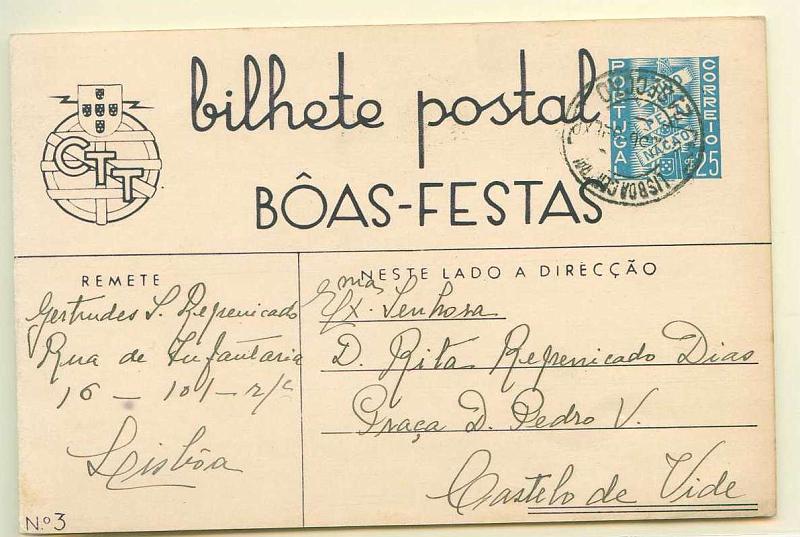 bilhete postal
BÔAS-FESTAS
CTT
PORTUGAL
CORREIO
25
TUDO PELA NAÇÃO
LISBOA CENTRAL
REMETE
Gertrudes S. Repenicado
Rua de Infantaria
16 - 101 - r/c
Lisbôa
NESTE LADO A DIRECÇÃO
Exma. Senhora
D. Rita Repenicado Dias
Praça D. Pedro V.
Castelo de Vide
N.o 3